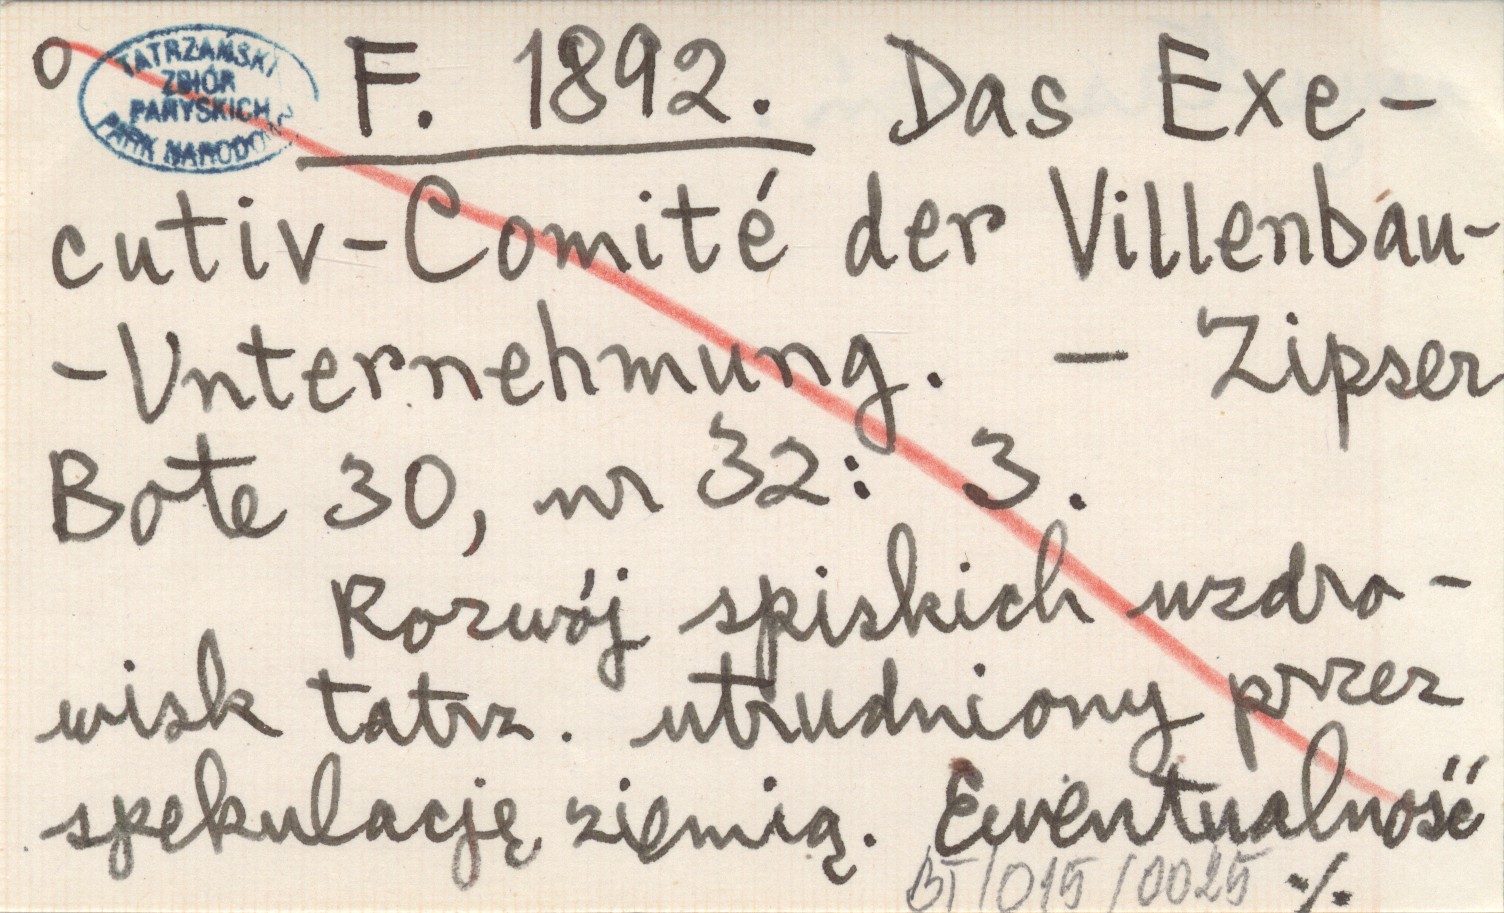 o TATRZAŃSKI
ZBIÓR
PARYSKICH
PARK NARODO
F. 1892. Das Exe-
cutiv-Comité der Villenbau-
-Unternehmung. — Zipser
Bote 30, nr 32: 3.
Rozwój spiskich uzdro-
wisk tatrz. utrudniony przez
spekulację ziemią. Ewentualność
BT/015/0025 ·/·